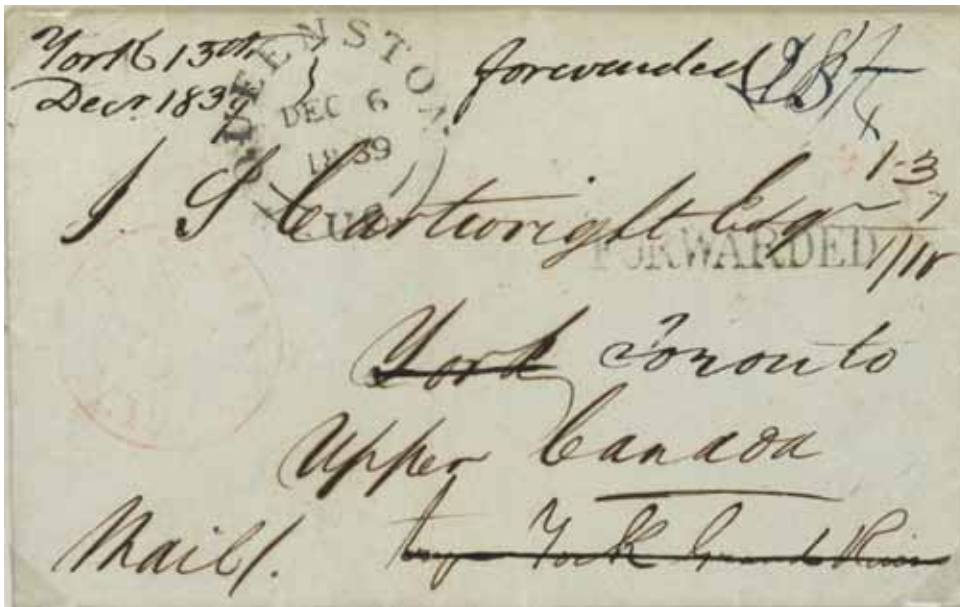 York 13th
Decr 1839
QUEENSTON
DEC 6
1839
forwarded
J. S. Cartwright Esqr
1-3
7
1/10
FORWARDED
York Toronto
Upper Canada
Mail/.
York Grand River